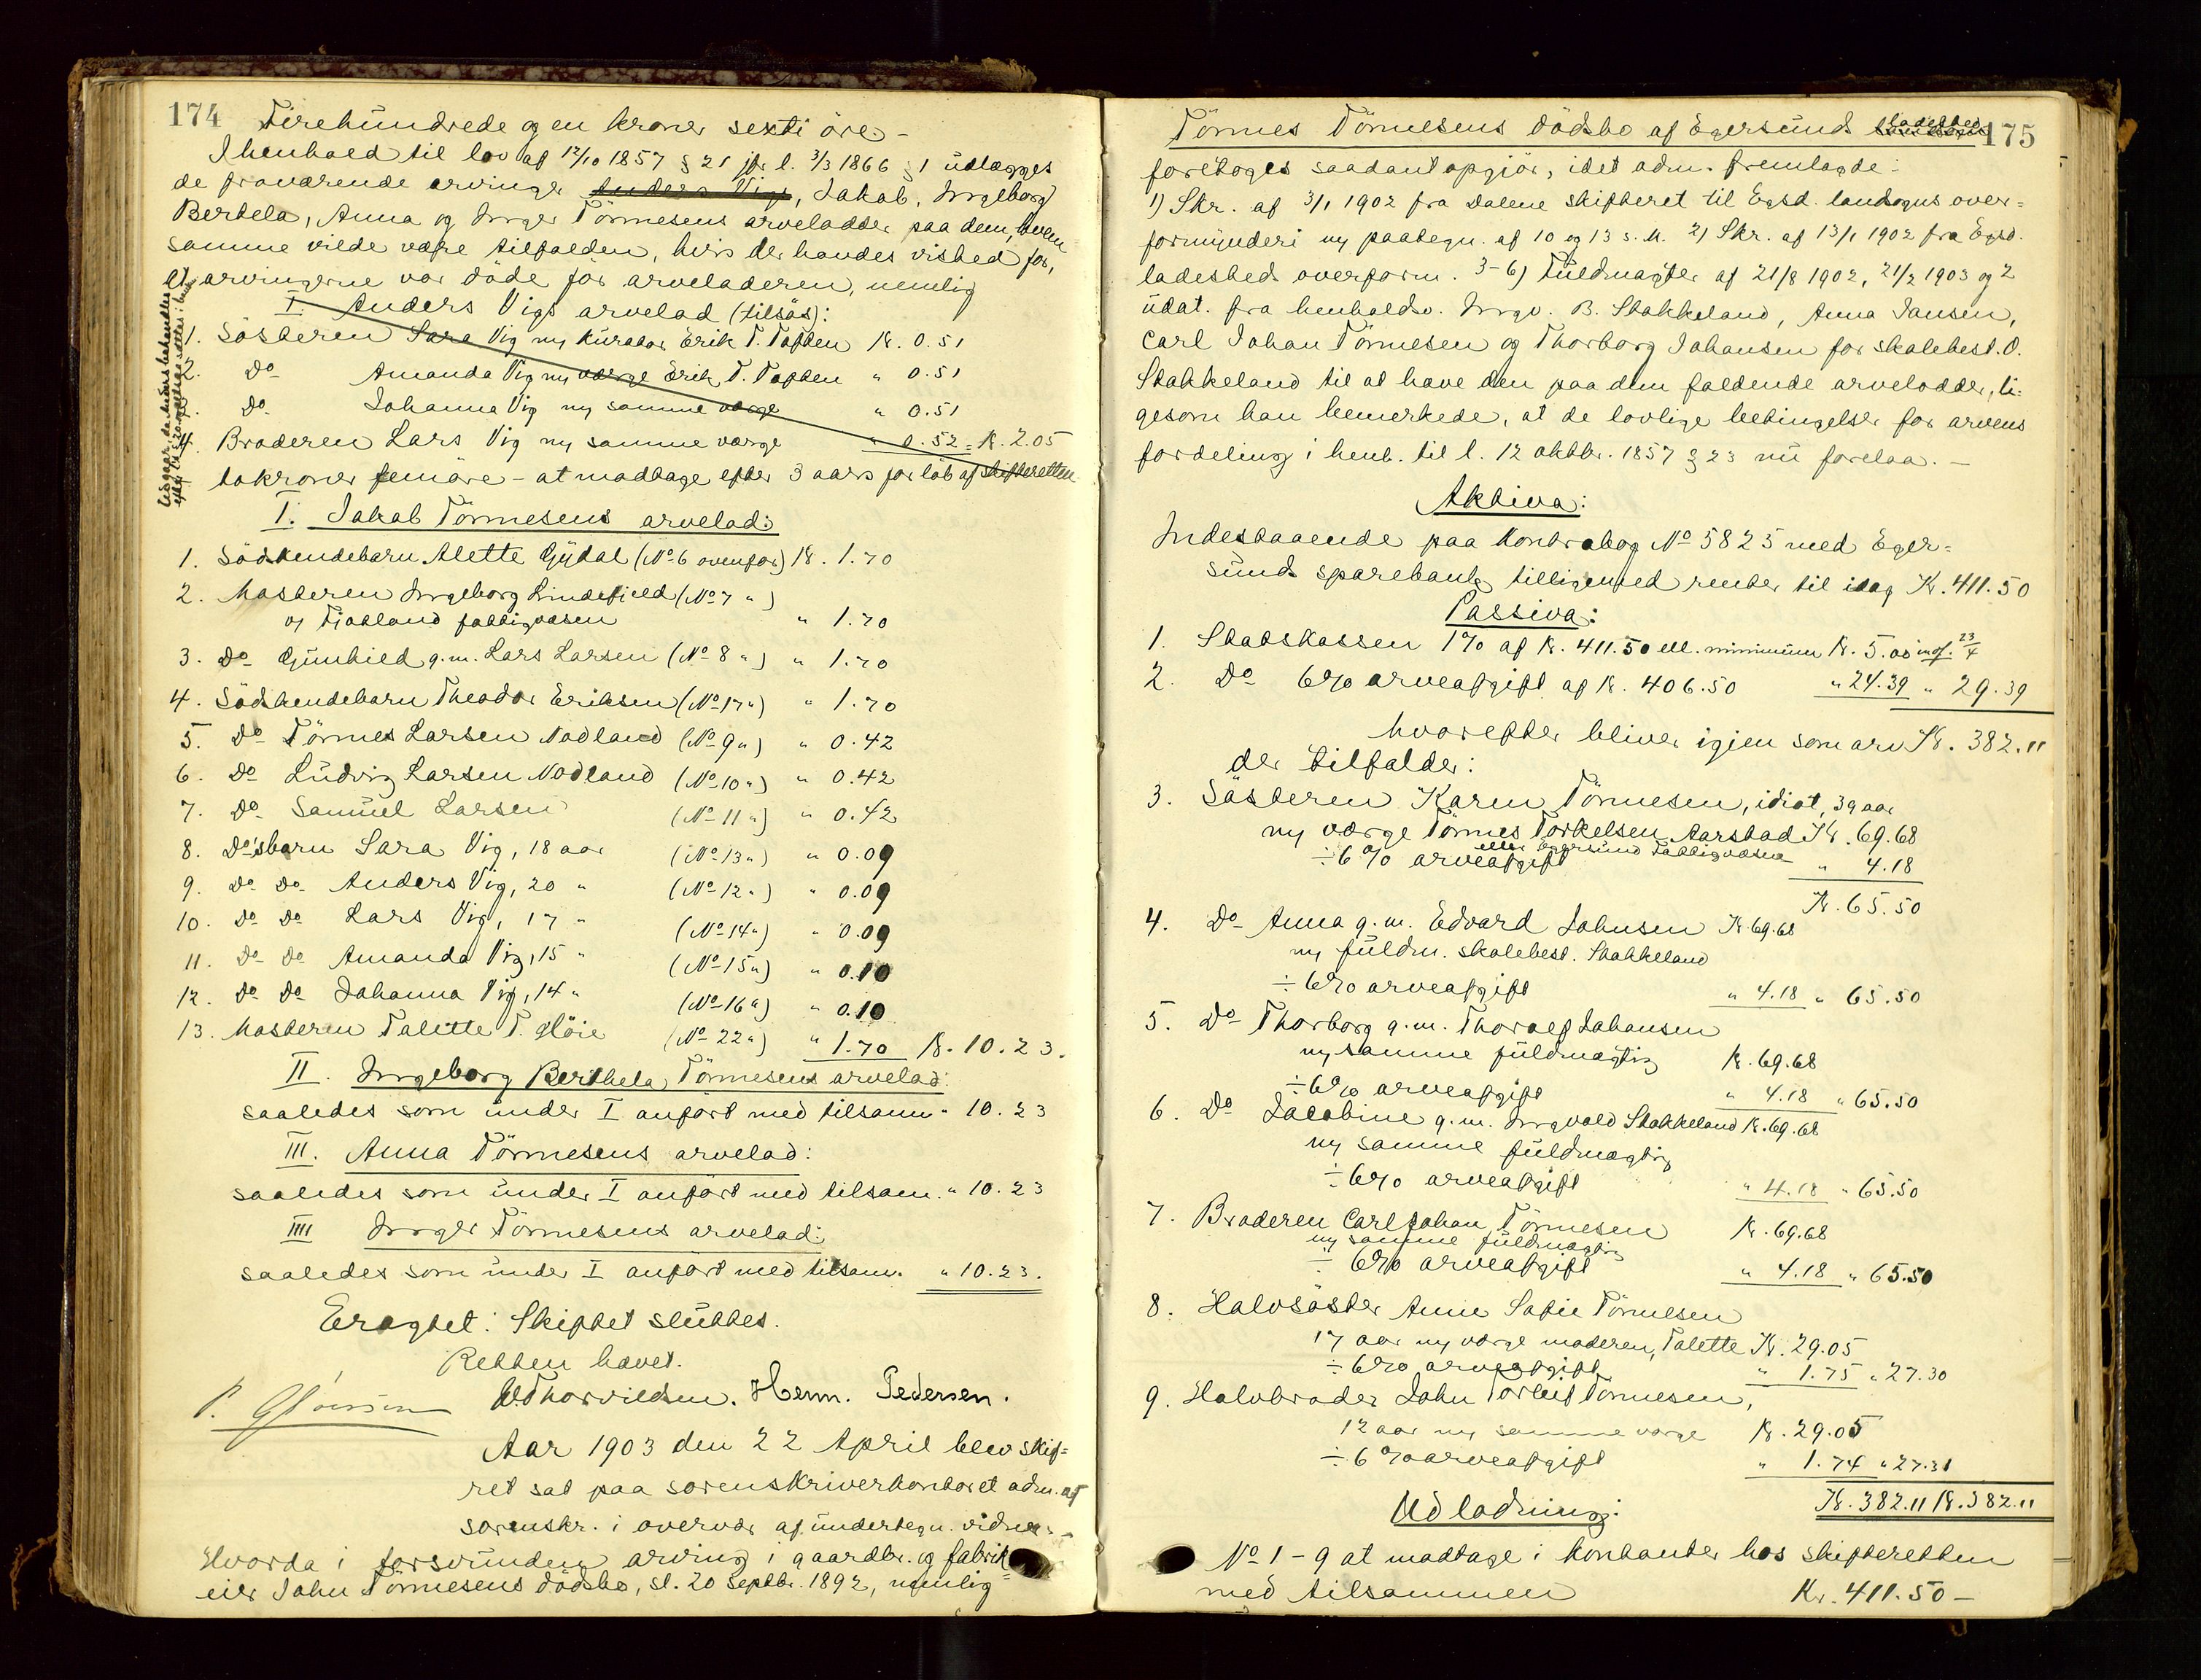 174 Firehundrede og en kroner sexti øre -
I henhold til lov af 12/10 1857 § 21 jfr l. 3/3 1866 § 1 udlægges
de fraværende arvinge Anders Vigs, Jakob, Ingeborg
Berthela, Anna og Inger Tönnesens arvelodder paa dem, hvem
samme vilde være tilfalden, hvis der havdes vished for,
at arvingerne var döde för arveladeren, nemlig
I. Anders Vigs arvelod (tilsös):
1. Sösteren Sara Vig ny kurator Erik T. Toften Kr. 0.51
2. Do Amanda Vig ny værge Erik T. Toften " 0.51
3. Do Johanna Vig ny samme værge " 0.51
4. Broderen Lars Vig ny samme værge " 0.52 = Kr. 2.05
tokroner femöre - at modtage efter 3 aars forlöb af skifteretten
I. Jakob Tönnesens arvelod:
1. Södskendebarn Alette Gydal (No 6 ovenfor) Kr. 1.70
2. Mosteren Ingeborg Lindefield (No 7 ")
og Fjotland fattigvæsen " 1.70
3. Do Gunhild g.m. Lars Larsen (No 8 ") " 1.70
4. Södskendebarn Theodor Eriksen (No 17 ") " 1.70
5. Do Tönnes Larsen Nodland (No 9 ") " 0.42
6. Do Ludvig Larsen Nodland (No 10 ") " 0.42
7. Do Samuel Larsen (No 11 ") " 0.42
8. Do'sbarn Sara Vig, 18 aar (No 13 ") " 0.09
9. Do Do Anders Vig, 20 " (No 12 ") " 0.09
10. Do Do Lars Vig, 17 " (No 14 ") " 0.09
11. Do Do Amanda Vig, 15 " (No 15 ") " 0.10
12. Do Do Johanna Vig, 14 " (No 16 ") " 0.10
13. Mosteren Talette T. Höie (No 22 ") " 1.70 Kr. 10.23.
II. Ingeborg Berthela Tönnesens arvelod:
saaledes som under I anfört med tilsamm. " 10.23
III. Anna Tönnesens arvelod:
saaledes som under I anfört med tilsam. " 10.23
IIII Inger Tönnesens arvelod:
saaledes som under I anfört med tilsam. " 10.23.
Eragtet: Skiftet sluttes.
Retten hævet.
W. Thorvildsen. Herm. Pedersen.
Aar 1903 den 22 April blev skif=
ret sat paa sorenskriverkontoret adm. af
sorenskr. i overvær af undertegn. vidner. -
Hvorda i forsvunden arving i gaardbr. og fabrik=
eier John Tönnesens dödsbo, sl. 20 septbr. 1892, nemlig
Tönnes Tönnesens dödsbo af Egersund ladested 175
foretoges saadant opgjör, idet adm. fremlagde:
1) Skr. af 3/1 1902 fra Dalene skifteret til Egsd. landsogns over=
formynderi ny paategn. af 10 og 13 s. M. 2) Skr. af 13/1 1902 fra Egsd.
ladesteds overform. 3-6) Fuldmagter af 21/8 1902, 21/2 1903 og 2
udat. fra henholdsv. Ingv. B. Stakkeland, Anna Jansen,
Carl Johan Tönnesen og Thorborg Johansen for skolebest. O.
Stakkeland til at hæve den paa dem faldende arvelodder, li=
gesom han bemerkede, at de lovlige betingelser for arvens
fordeling i henh. til l. 12 oktbr. 1857 § 23 nu forelaa. -
Aktiva:
Indestaaende paa Kontrabog No 5825 med Eger=
sunds sparebank tilligemed renter til idag Kr. 411.50
Passiva:
1. Statskassen 1% af Kr. 411.50 ell. minimum Kr. 5.00 indf. 23/4
2. Do 6% arveafgift af Kr. 406.50 " 24.39 " 29.39
hvorefter bliver igjen som arv Kr. 382.11
der tilfalder:
3. Sösteren Karen Tönnesen, idiot, 39 aar
ny værge Tönnes Torkelsen Aarstad Kr. 69.68
eller Egersund Fattigvæsen
÷ 6% arveafgift " 4.18
Kr. 65.50
4. Do Anna g.m. Edvard Johnsen Kr. 69.68
ny fuldm. skolebest. Stakkeland
÷ 6% arveafgift " 4.18 " 65.50
5. Do Thorborg g.m. Thoralf Johansen
ny samme fuldmægtig Kr. 69.68
÷ 6% arveafgift " 4.18 " 65.50
6. Do Jacobine g.m. Ingvald Stakkeland Kr. 69.68
ny samme fuldmægtig
÷ 6% arveafgift " 4.18 " 65.50
7. Broderen Carl Johan Tönnesen Kr. 69.68
ny samme fuldmægtig
÷ 6% arveafgift " 4.18 " 65.50
8. Halvsöster Anne Sofie Tönnesen
17 aar ny værge moderen, Talette Kr. 29.05
÷ 6% arveafgift " 1.75 " 27.30
9. Halvbroder John Torleif Tönnesen,
12 aar ny samme værge Kr. 29.05
÷ 6% arveafgift " 1.74 " 27.31
Kr. 382.11 Kr. 382.11
Udlodning:
No 1 - 9 at modtage i kontanter hos skifteretten
med tilsammen Kr. 411.50 -